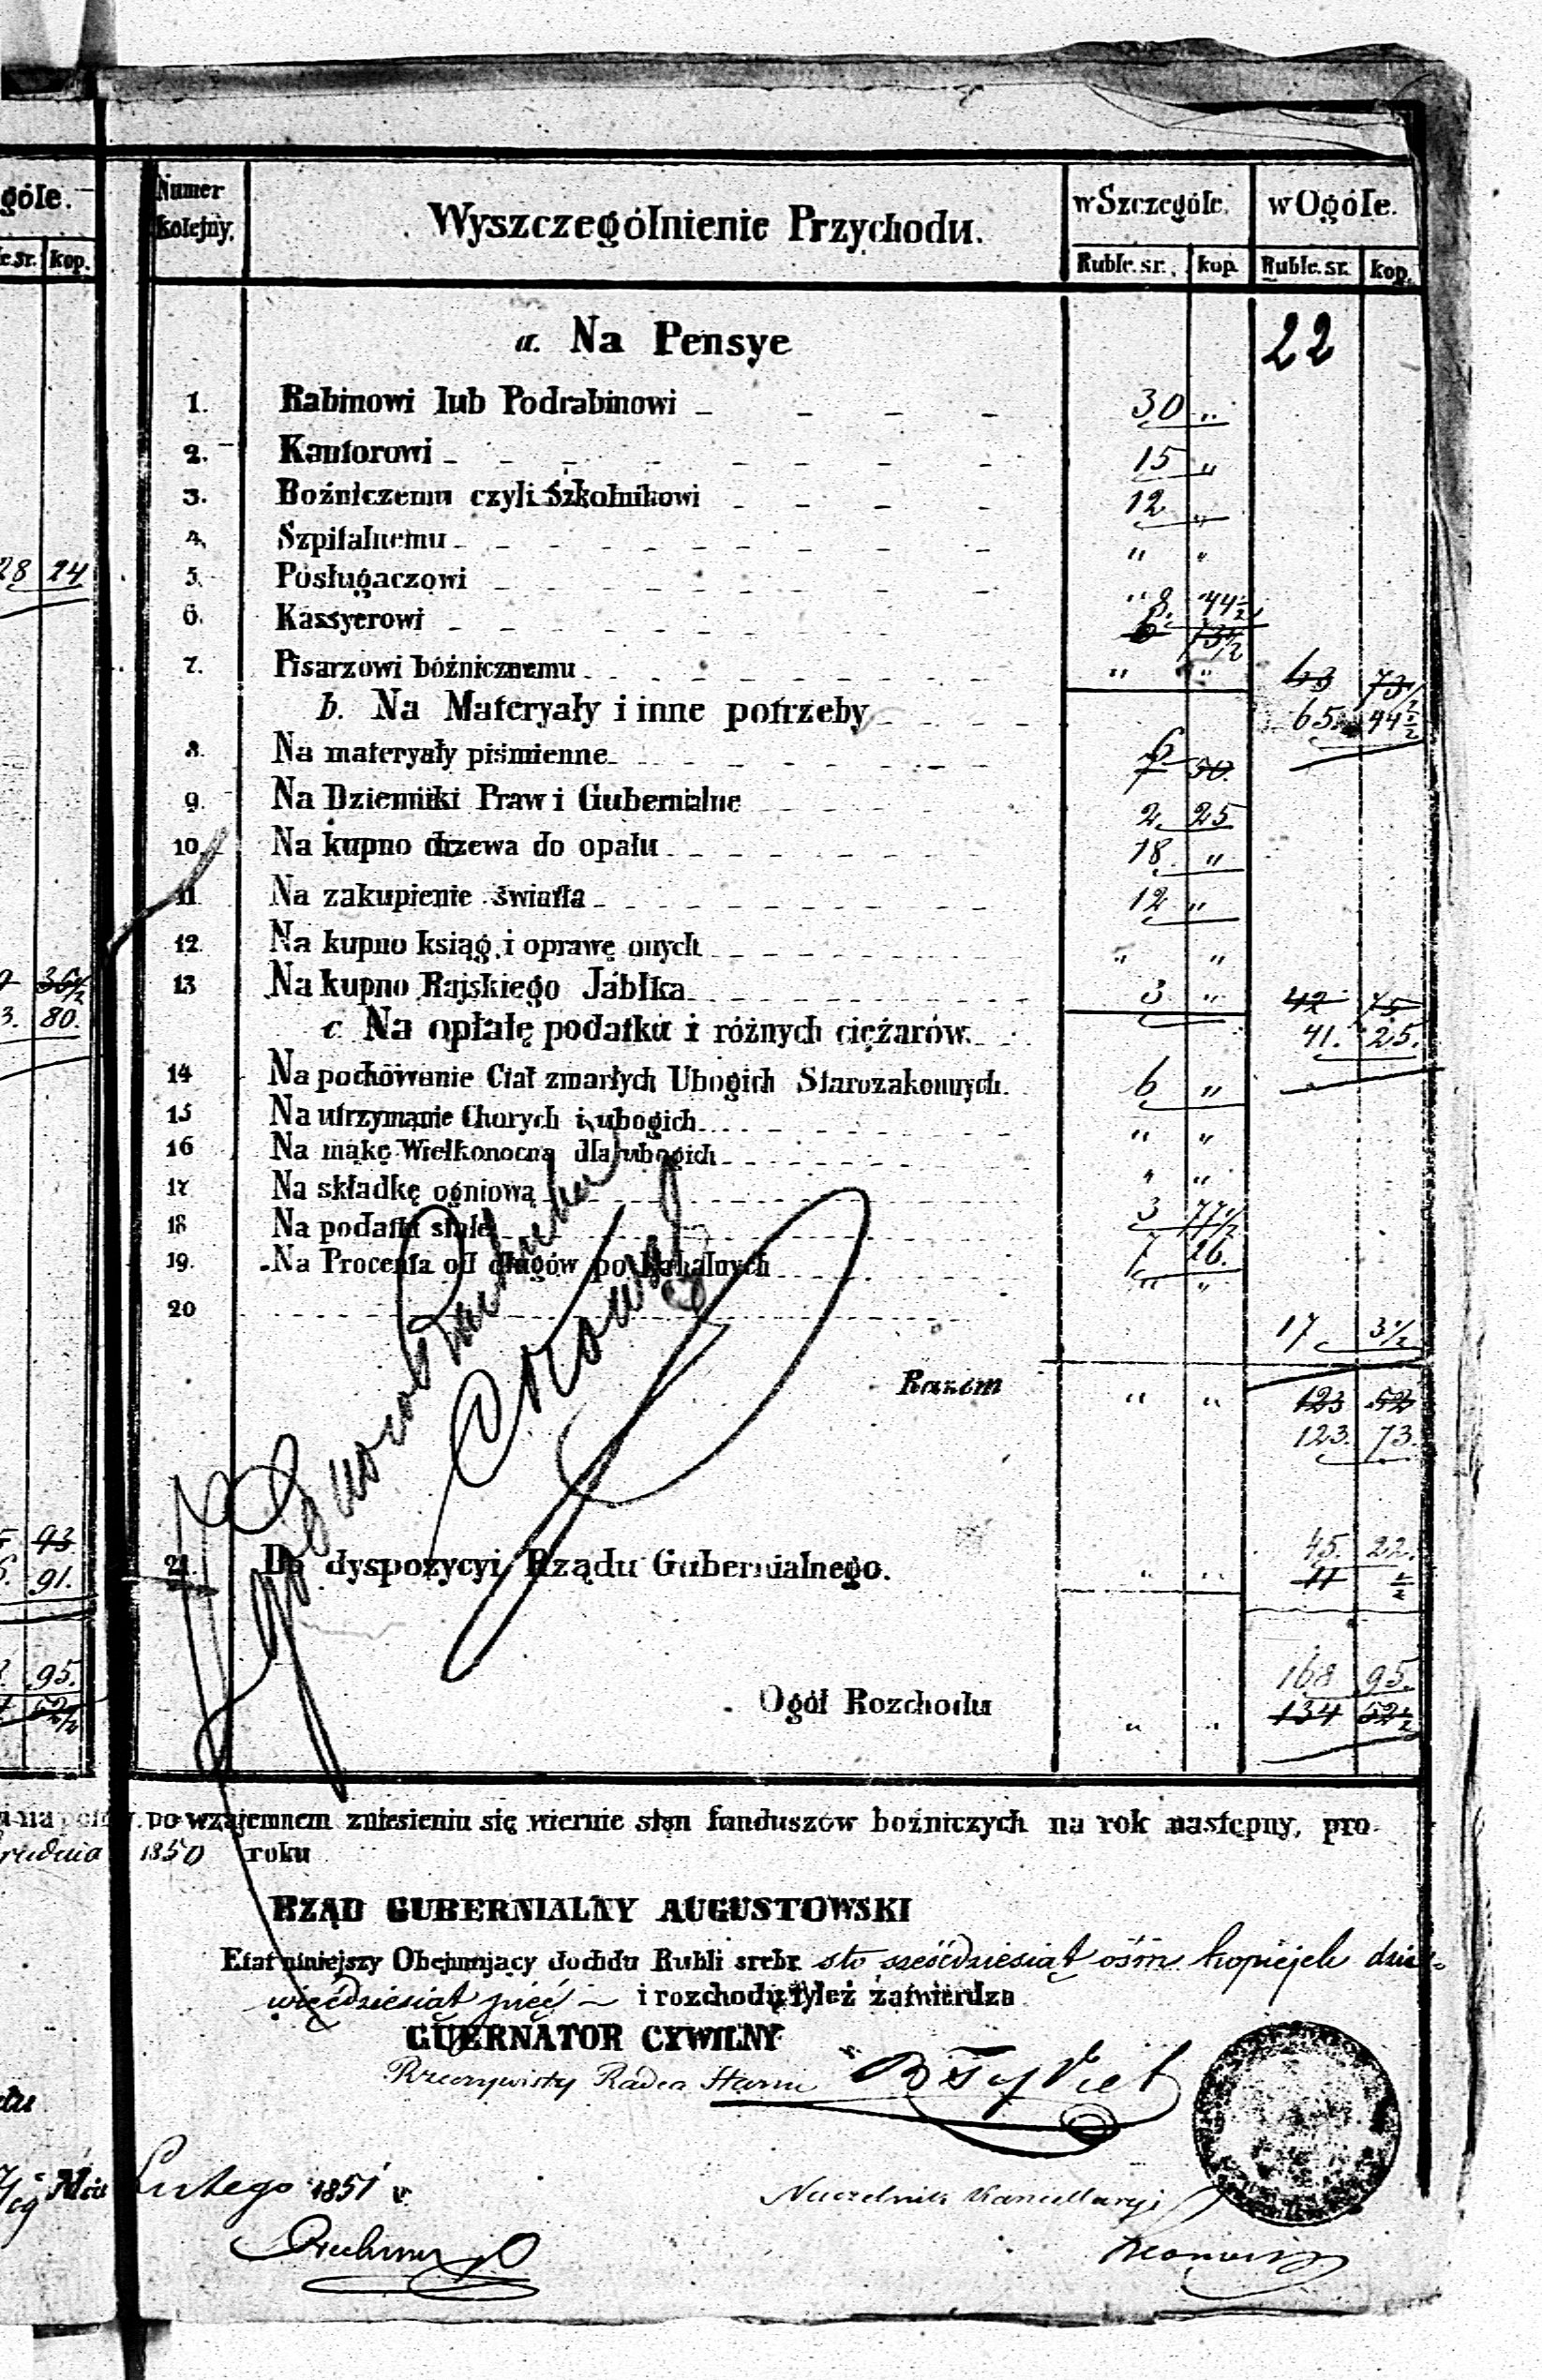 góle. Numer kolejny. Wyszczególnienie Przychodu. w Szczególe. w Ogóle.
kop. Ruble. sr. kop. Ruble. sr. kop.
a. Na Pensye 22
1. Rabinowi lub Podrabinowi 30 „
2. Kantorowi 15 „
3. Bożniczemu czyli Szkolnikowi 12 „
4. Szpitalnemu „ „
28 24 5. Posługaczowi „
6. Kassyerowi 8. 44½
6 13½
7. Pisarzowi bóżnicznemu „ „ 63 73½
b. Na Materyały i inne potrzeby 65. 44½
8. Na materyały piśmienne 6
7 50.
9. Na Dzienniki Praw i Gubernialne 2. 25
10. Na kupno drzewa do opału 18. „
11 Na zakupienie światła 12 „
12. Na kupno ksiąg i oprawę onych „ „
36½ 13 Na kupno Rajskiego Jabłka 3 „ 42 75
3. 80. c Na opłatę podatku i różnych ciężarów. 41. 25.
14 Na pochowanie Ciał zmarłych Ubogich Starozakonnych. 6 „
15 Na utrzymanie Chorych i ubogich „ „
16 Na mąkę Wielkonocną dla ubogich „ „
17 Na składkę ogniową 3 77½
18 Na podatki stałe 7 26.
19. Na Procenta od długów po Kahalnych „ „
20 17 3½
Razem „ „ 123 52
123. 73.
93 45. 22.
91. 21. Do dyspozycyi Rządu Gubernialnego. „ „ 11 ½
95. 168 95.
52½ Ogół Rozchodu „ „ 134 52½
po wzajemnem zniesieniu się wiernie stan funduszów bożniczych na rok następny, pro-
1850 roku
RZĄD GUBERNIALNY AUGUSTOWSKI
Etat niniejszy Obejmujący dochdu Rubli srebr. sto sześćdziesiąt ośm kopiejek dzie-
więćdziesiąt pięć i rozchodu tyleż zatwierdza
GUBERNATOR CYWILNY
Rzeczywisty Radca Stanu
Lutego 1851 r
Naczelnik Kancellaryi